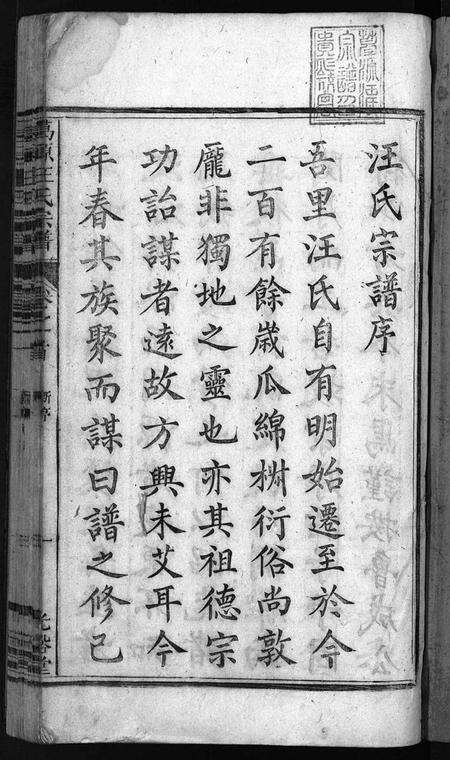 汪氏宗譜序
吾里汪氏自有明始遷至於今
二百有餘歲瓜綿椒衍俗尚敦
龐非獨地之靈也亦其祖德宗
功詒謀者遠故方興未艾耳今
年春其族聚而謀曰譜之修已
汪氏宗譜
新序
一